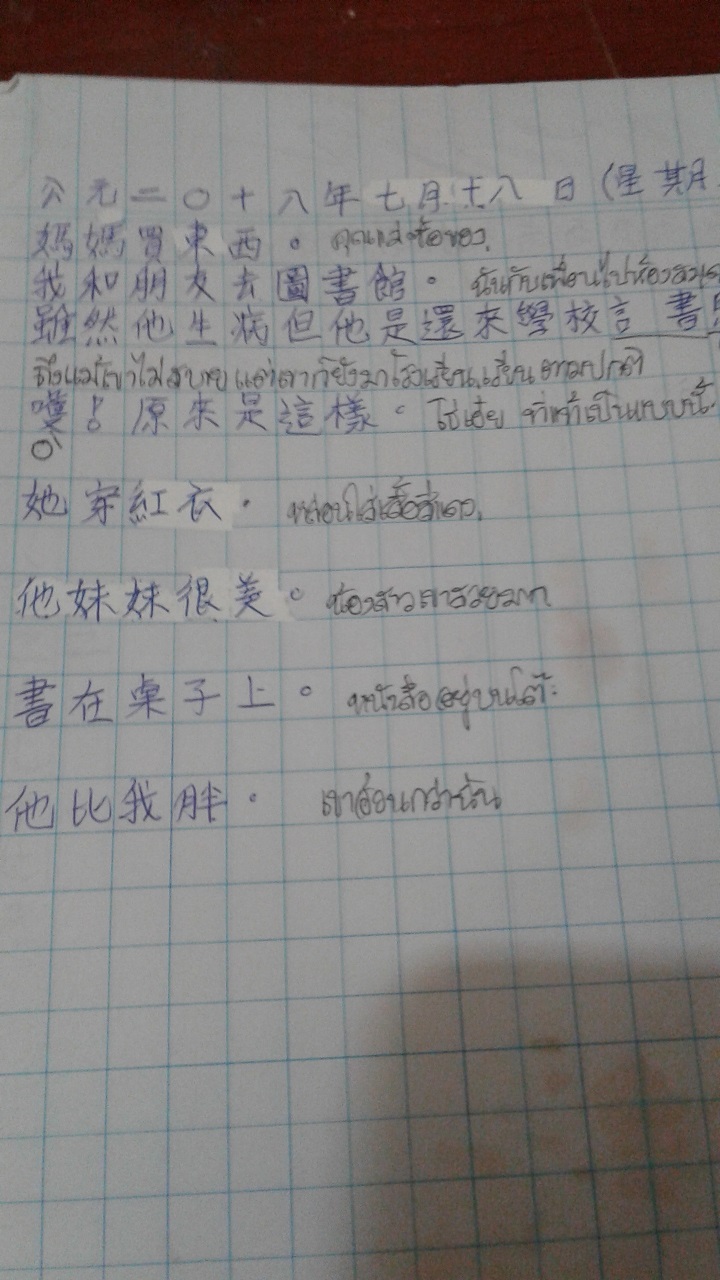 公元二〇十八年七月十八日(星期
媽媽買東西。คุณแม่ซื้อของ.
我和朋友去圖書館。ฉันกับเพื่อนไปห้องสมุด
雖然他生病但他是還來學校言書
ถึงแม้เขาไม่สบาย แต่เขาก็ยังมาโรงเรียน เรียนตามปกติ
嘆!原來是這樣。โธ่เอ๊ย ที่แท้เป็นแบบนี้.
她穿紅衣。หล่อนใส่เสื้อสีแดง.
他妹妹很美。น้องสาวเขาสวยมาก
書在桌子上。หนังสืออยู่บนโต๊ะ
他比我胖。เขาอ้วนกว่าฉัน